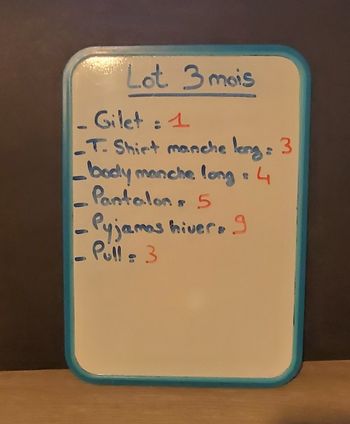 Lot 3 mois
- Gilet : 1
- T. Shirt manche long : 3
- body manche long : 4
- Pantalon : 5
- Pyjamas hiver : 9
- Pull : 3